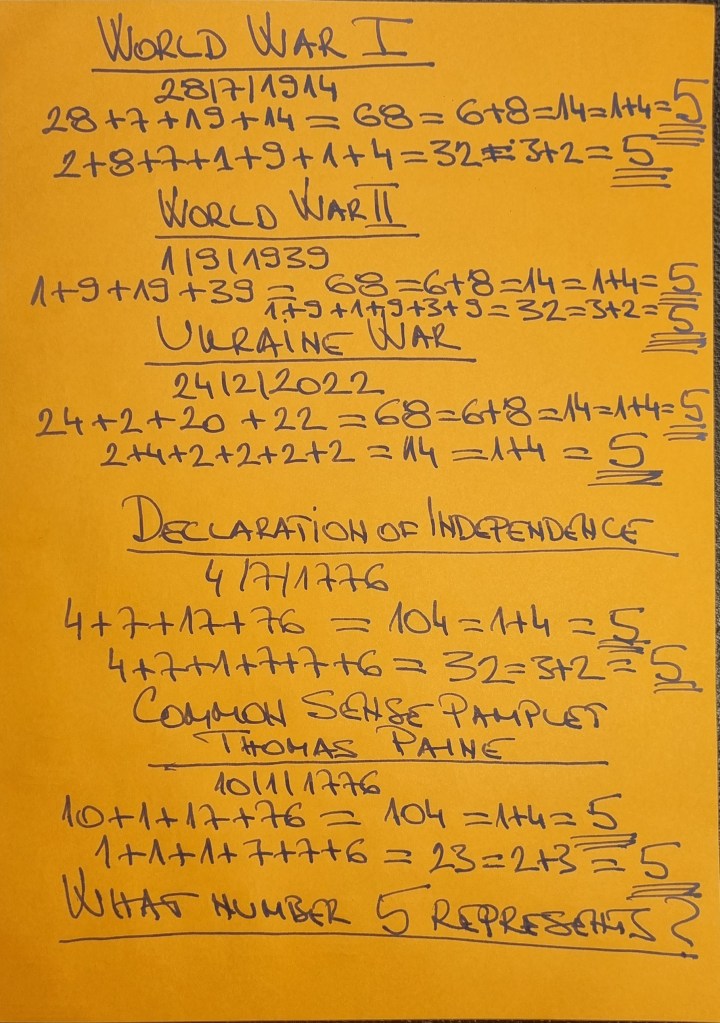 WORLD WAR I
28/7/1914
28+7+19+14 = 68 = 6+8=14=1+4=5
2+8+7+1+9+1+4=32=3+2=5
WORLD WAR II
1/9/1939
1+9+19+39= 68=6+8=14=1+4=5
1+9+1+9+3+9=32=3+2=5
UKRAINE WAR
24/2/2022
24+2+20+22=68=6+8=14=1+4=5
2+4+2+2+2+2=14=1+4=5
DECLARATION OF INDEPENDENCE
4/7/1776
4+7+17+76 = 104=1+4=5
4+7+1+7+7+6=32=3+2=5
COMMON SENSE PAMPLET
THOMAS PAINE
10/1/1776
10+1+17+76= 104=1+4=5
1+1+1+7+7+6=23=2+3=5
WHAT NUMBER 5 REPRESENTS?